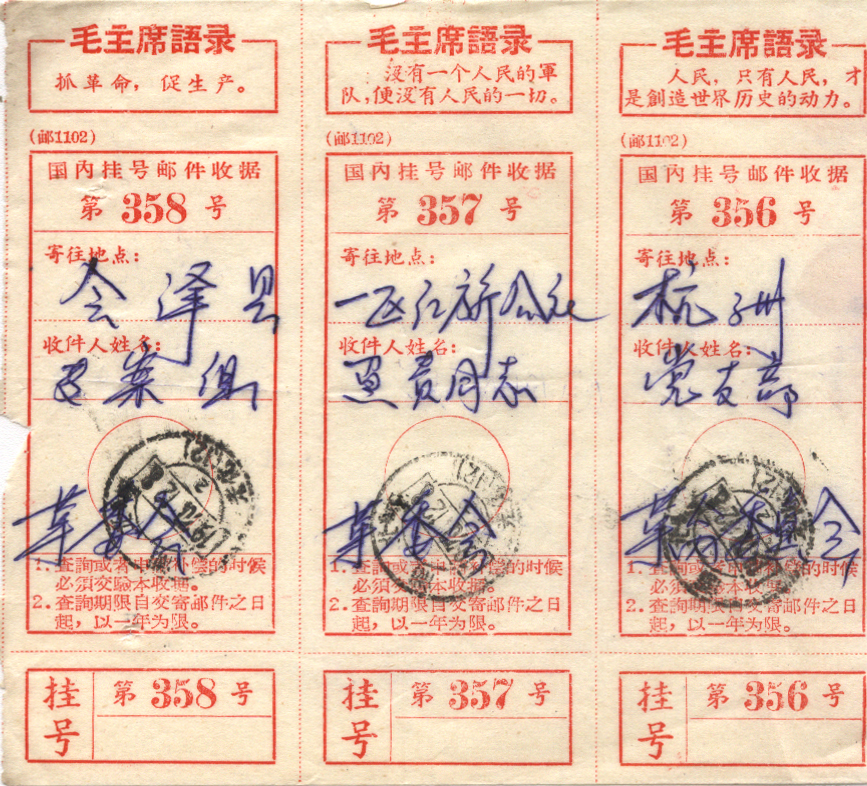 毛主席語录
抓革命，促生产。
(邮1102)
国内挂号邮件收据
第 358 号
寄往地点：
会泽县
收件人姓名：
专案组
革委会
1. 查詢或者申請补偿的时候
必须交驗本收据。
2. 查詢期限自交寄邮件之日
起，以一年为限。
挂号
第 358 号
毛主席語录
沒有一个人民的軍
队，便沒有人民的一切。
(邮1102)
国内挂号邮件收据
第 357 号
寄往地点：
一区仁所公社
收件人姓名：
员同志
革委会
1. 查詢或者申請补偿的时候
必须交驗本收据。
2. 查詢期限自交寄邮件之日
起，以一年为限。
挂号
第 357 号
毛主席語录
人民，只有人民，才
是創造世界历史的动力。
(邮1102)
国内挂号邮件收据
第 356 号
寄往地点：
杭州
收件人姓名：
党支部
革命委员会
1. 查詢或者申請补偿的时候
必须交驗本收据。
2. 查詢期限自交寄邮件之日
起，以一年为限。
挂号
第 356 号